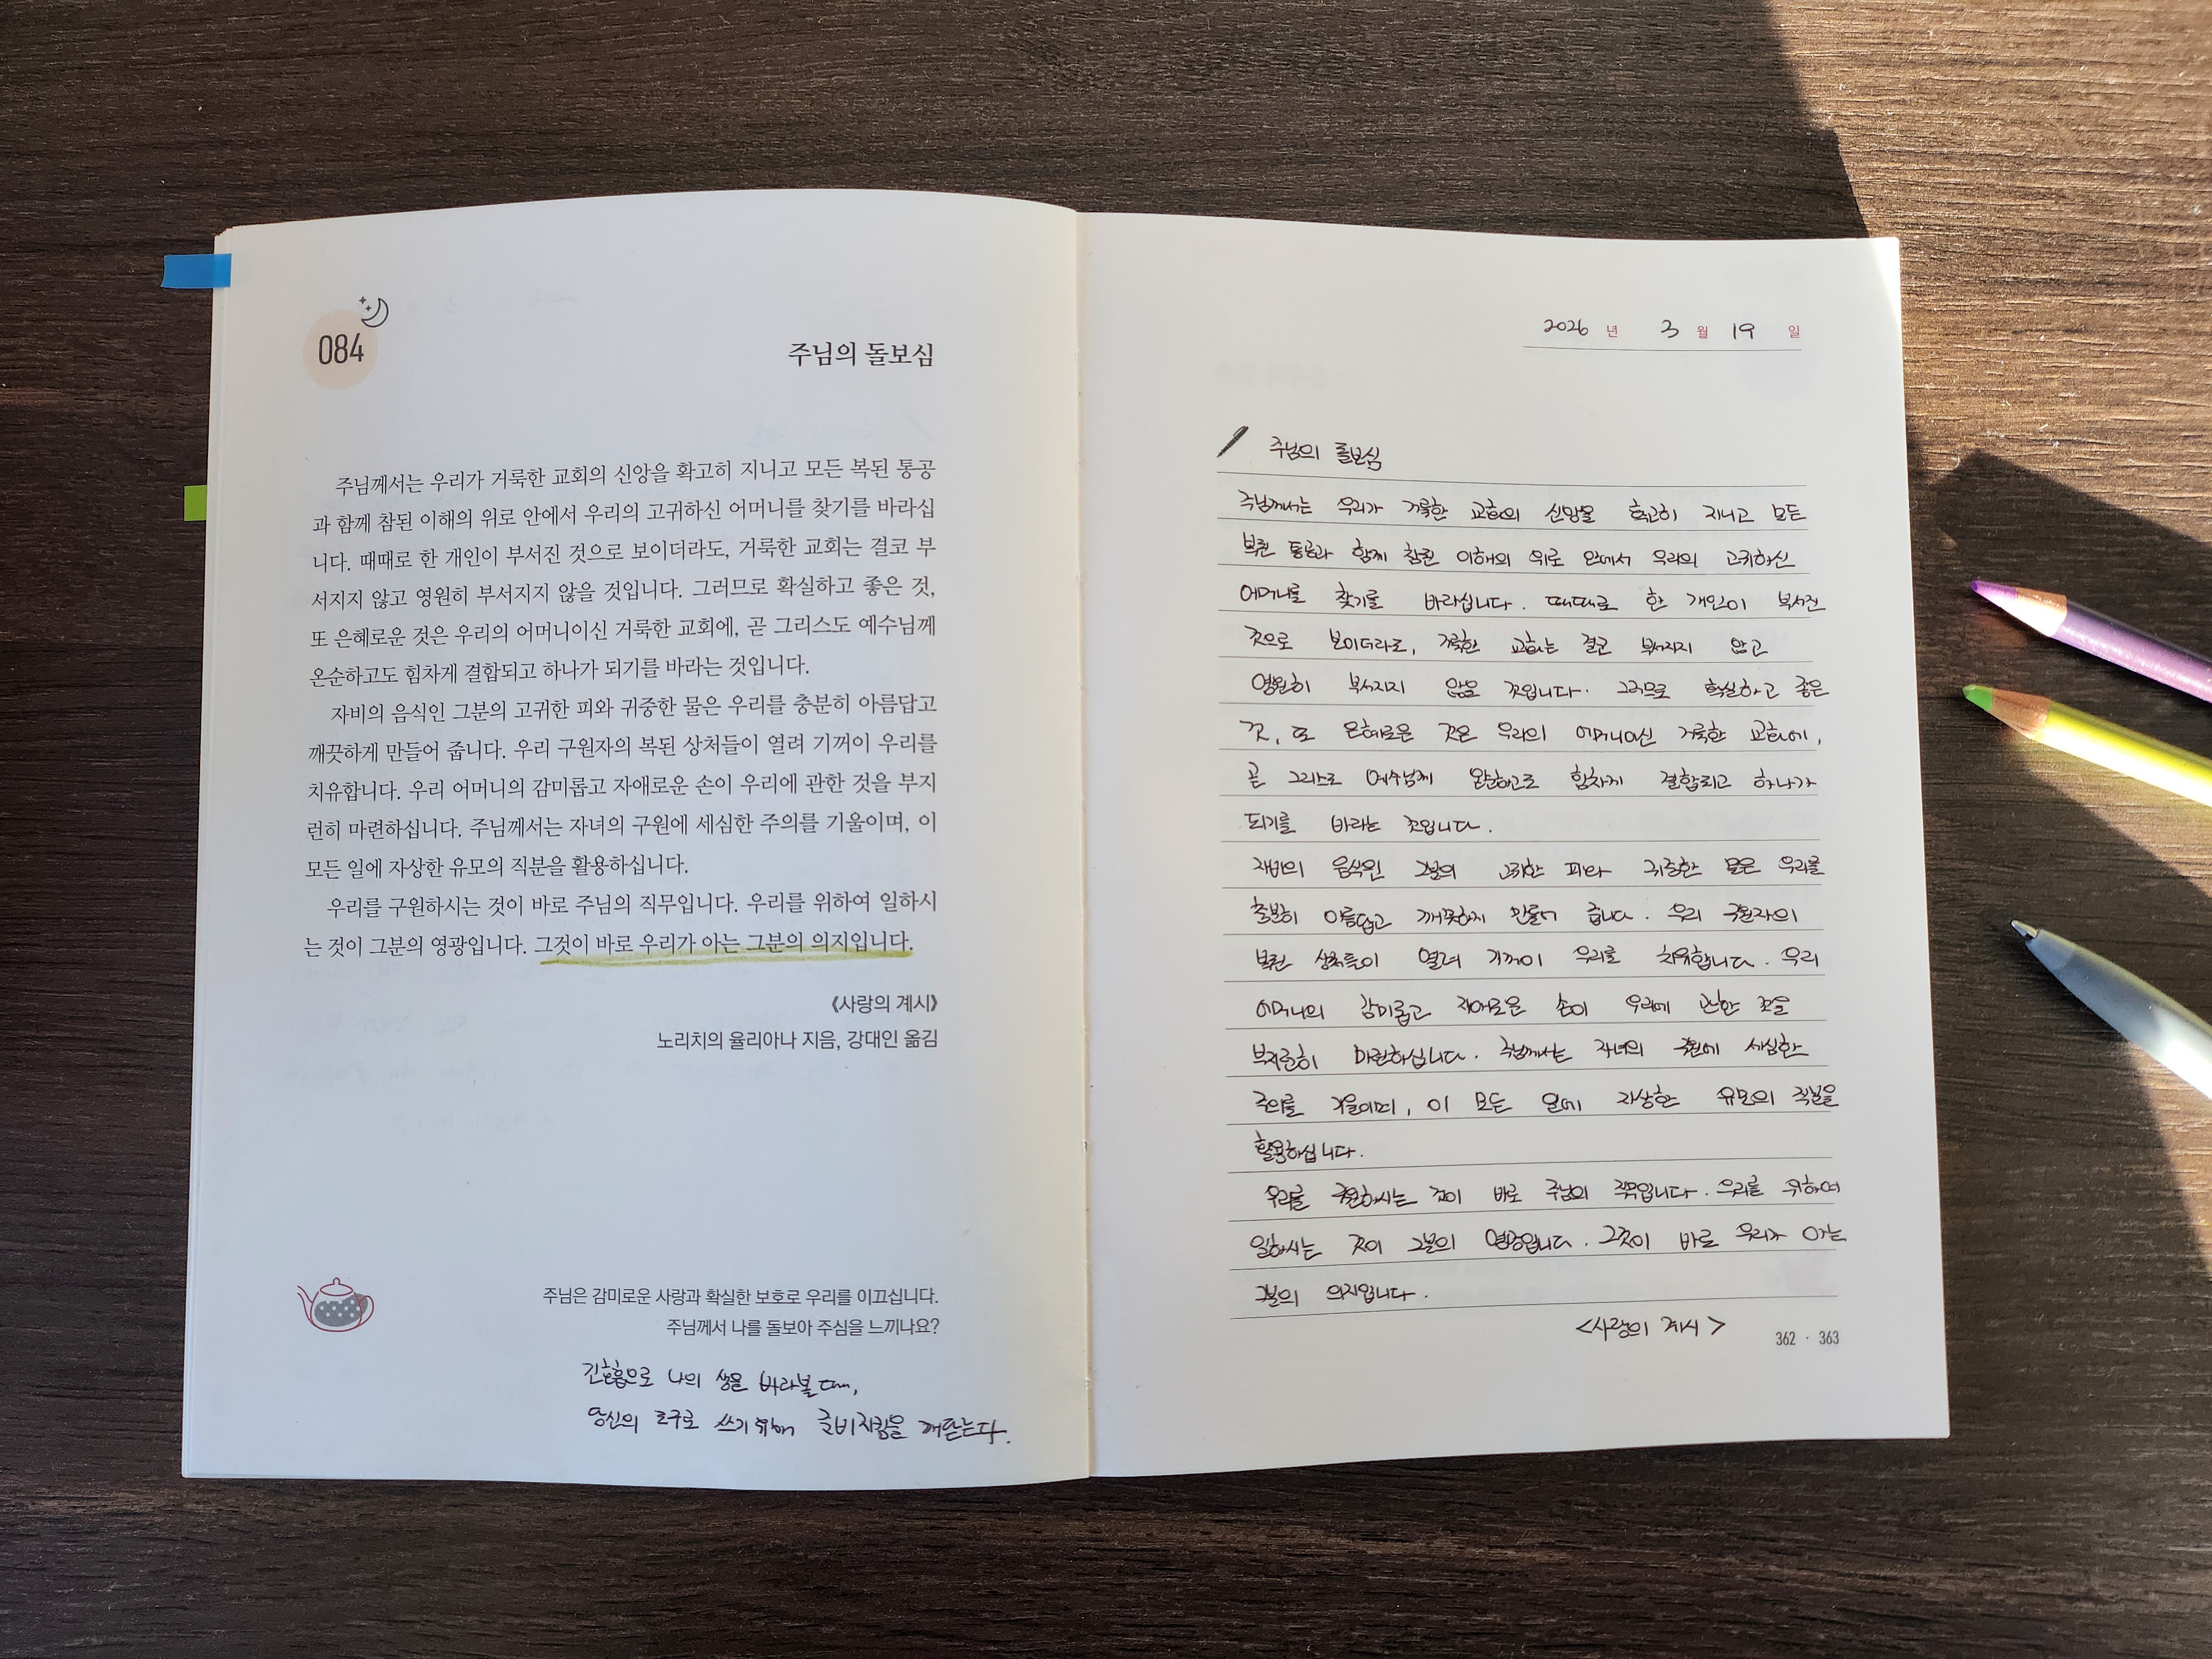 084
주님의 돌보심
주님께서는 우리가 거룩한 교회의 신앙을 확고히 지니고 모든 복된 통공
과 함께 참된 이해의 위로 안에서 우리의 고귀하신 어머니를 찾기를 바라십
니다. 때때로 한 개인이 부서진 것으로 보이더라도, 거룩한 교회는 결코 부
서지지 않고 영원히 부서지지 않을 것입니다. 그러므로 확실하고 좋은 것,
또 은혜로운 것은 우리의 어머니이신 거룩한 교회에, 곧 그리스도 예수님께
온순하고도 힘차게 결합되고 하나가 되기를 바라는 것입니다.
자비의 음식인 그분의 고귀한 피와 귀중한 물은 우리를 충분히 아름답고
깨끗하게 만들어 줍니다. 우리 구원자의 복된 상처들이 열려 기꺼이 우리를
치유합니다. 우리 어머니의 감미롭고 자애로운 손이 우리에 관한 것을 부지
런히 마련하십니다. 주님께서는 자녀의 구원에 세심한 주의를 기울이며, 이
모든 일에 자상한 유모의 직분을 활용하십니다.
우리를 구원하시는 것이 바로 주님의 직무입니다. 우리를 위하여 일하시
는 것이 그분의 영광입니다. 그것이 바로 우리가 아는 그분의 의지입니다.
《사랑의 계시》
노리치의 율리아나 지음, 강대인 옮김
주님은 감미로운 사랑과 확실한 보호로 우리를 이끄십니다.
주님께서 나를 돌보아 주심을 느끼나요?
긴 호흡으로 나의 생을 바라볼 때,
당신의 도구로 쓰기 위해 준비시킴을 깨닫는다.
2026 년 3 월 19 일
주님의 돌보심
주님께서는 우리가 거룩한 교회의 신앙을 확고히 지니고 모든
복된 통공과 함께 참된 이해의 위로 안에서 우리의 고귀하신
어머니를 찾기를 바라십니다. 때때로 한 개인이 부서진
것으로 보이더라도, 거룩한 교회는 결코 부서지지 않고
영원히 부서지지 않을 것입니다. 그러므로 확실하고 좋은
것, 또 은혜로운 것은 우리의 어머니이신 거룩한 교회에,
곧 그리스도 예수님께 온순하고도 힘차게 결합되고 하나가
되기를 바라는 것입니다.
자비의 음식인 그분의 고귀한 피와 귀중한 물은 우리를
충분히 아름답고 깨끗하게 만들어 줍니다. 우리 구원자의
복된 상처들이 열려 기꺼이 우리를 치유합니다. 우리
어머니의 감미롭고 자애로운 손이 우리에 관한 것을
부지런히 마련하십니다. 주님께서는 자녀의 구원에 세심한
주의를 기울이며, 이 모든 일에 자상한 유모의 직분을
활용하십니다.
우리를 구원하시는 것이 바로 주님의 직무입니다. 우리를 위하여
일하시는 것이 그분의 영광입니다. 그것이 바로 우리가 아는
그분의 의지입니다.
<사랑의 계시>
362 · 363